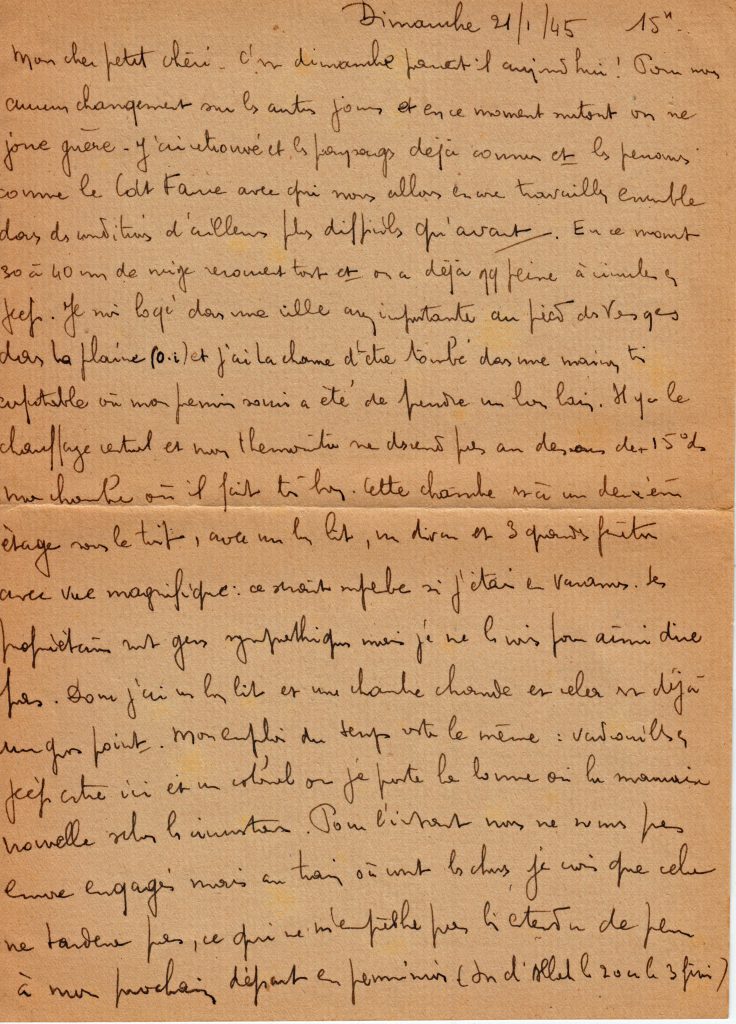 Dimanche 21/1/45 15h.
Mon cher petit chéri. C'est dimanche paraît-il aujourd'hui ! Pour nous
aucun changement sur les autres jours et en ce moment surtout on ne
joue guère. J'ai retrouvé et les paysages déjà connus et les personnes
comme le Cdt Favre avec qui nous allons encore travailler ensemble
dans des conditions d'ailleurs plus difficiles qu'avant. En ce moment
30 à 40 cm de neige recouvrent tout et on a déjà qq peine à circuler en
jeep. Je suis logé dans une ville assez importante au pied des Vosges
dans la plaine (o.i) et j'ai la chance d'être tombé dans une maison très
confortable où mon premier souci a été de prendre un bon bain. Il y a le
chauffage central et mon thermomètre ne descend pas au dessous de + 15° ds
ma chambre où il fait très bon. Cette chambre est à un deuxième
étage sous le toit, avec un bon lit, un divan et 3 grandes fenêtres
avec vue magnifique : ce serait superbe si j'étais en vacances. Les
propriétaires sont gens sympathiques mais je ne les vois pour ainsi dire
pas. Donc j'ai un bon lit et une chambre chaude et cela est déjà
un gros point. Mon emploi du temps reste le même : vadrouilles en
jeep entre ici et un colonel où je porte la bonne ou la mauvaise
nouvelle selon les circonstances. Pour l'instant nous ne sommes pas
encore engagés mais au train où vont les choses je crois que cela
ne tardera pas, ce qui ne m'empêche pas de
à mon prochain départ en permission (Inch'Allah le 20 ou le 3 )